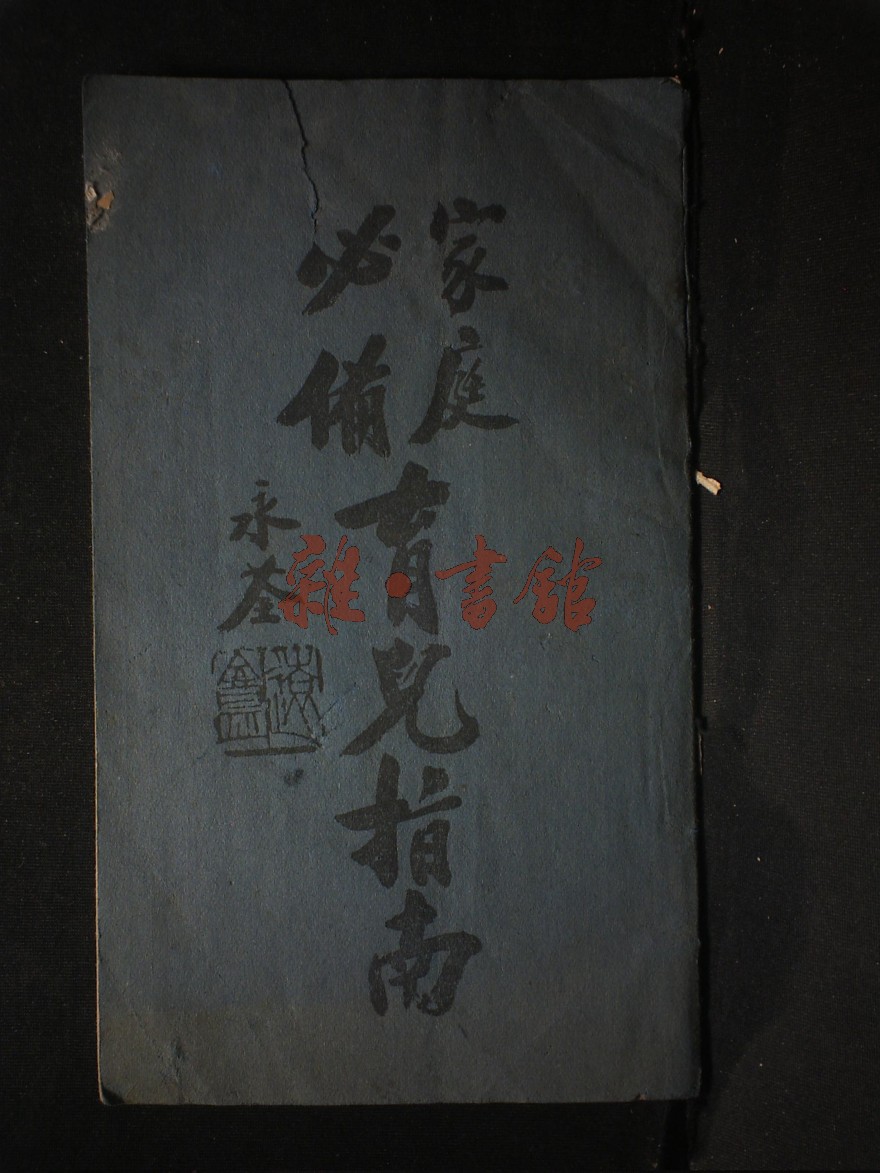 家庭
必備
育兒指南
永荃
雜·書館